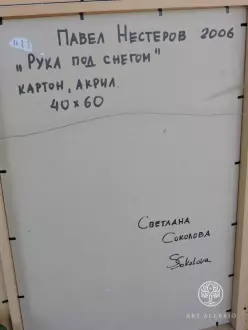 ПАВЕЛ НЕСТЕРОВ 2006
„РУКА ПОД СНЕГОМ"
КАРТОН, АКРИЛ.
40×60
СВЕТЛАНА
СОКОЛОВА
SSokolova